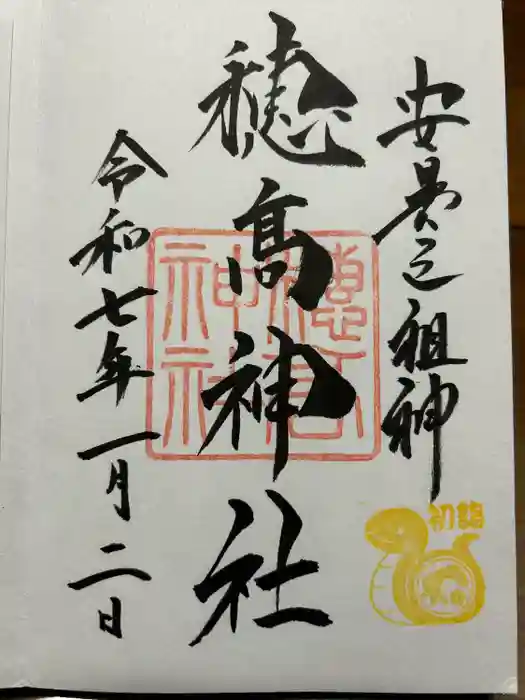 安曇之祖神
穂高神社
令和七年一月二日
穂高神社
初詣